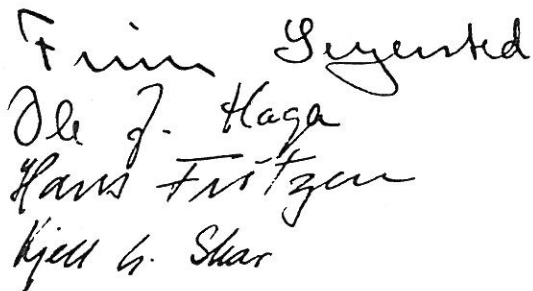 Finn Seyersted
Ole J. Haga
Hans Fritzen
Kjell G. Skar